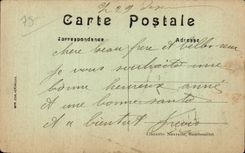 Le 29 Dec
Carte Postale
Correspondance
Adresse
chere beau frere et belle sœur
je vous souhaite une
bonne heureux anné
et une bonne santé
a bientot
Librairie Nouvelle, Rambouillet